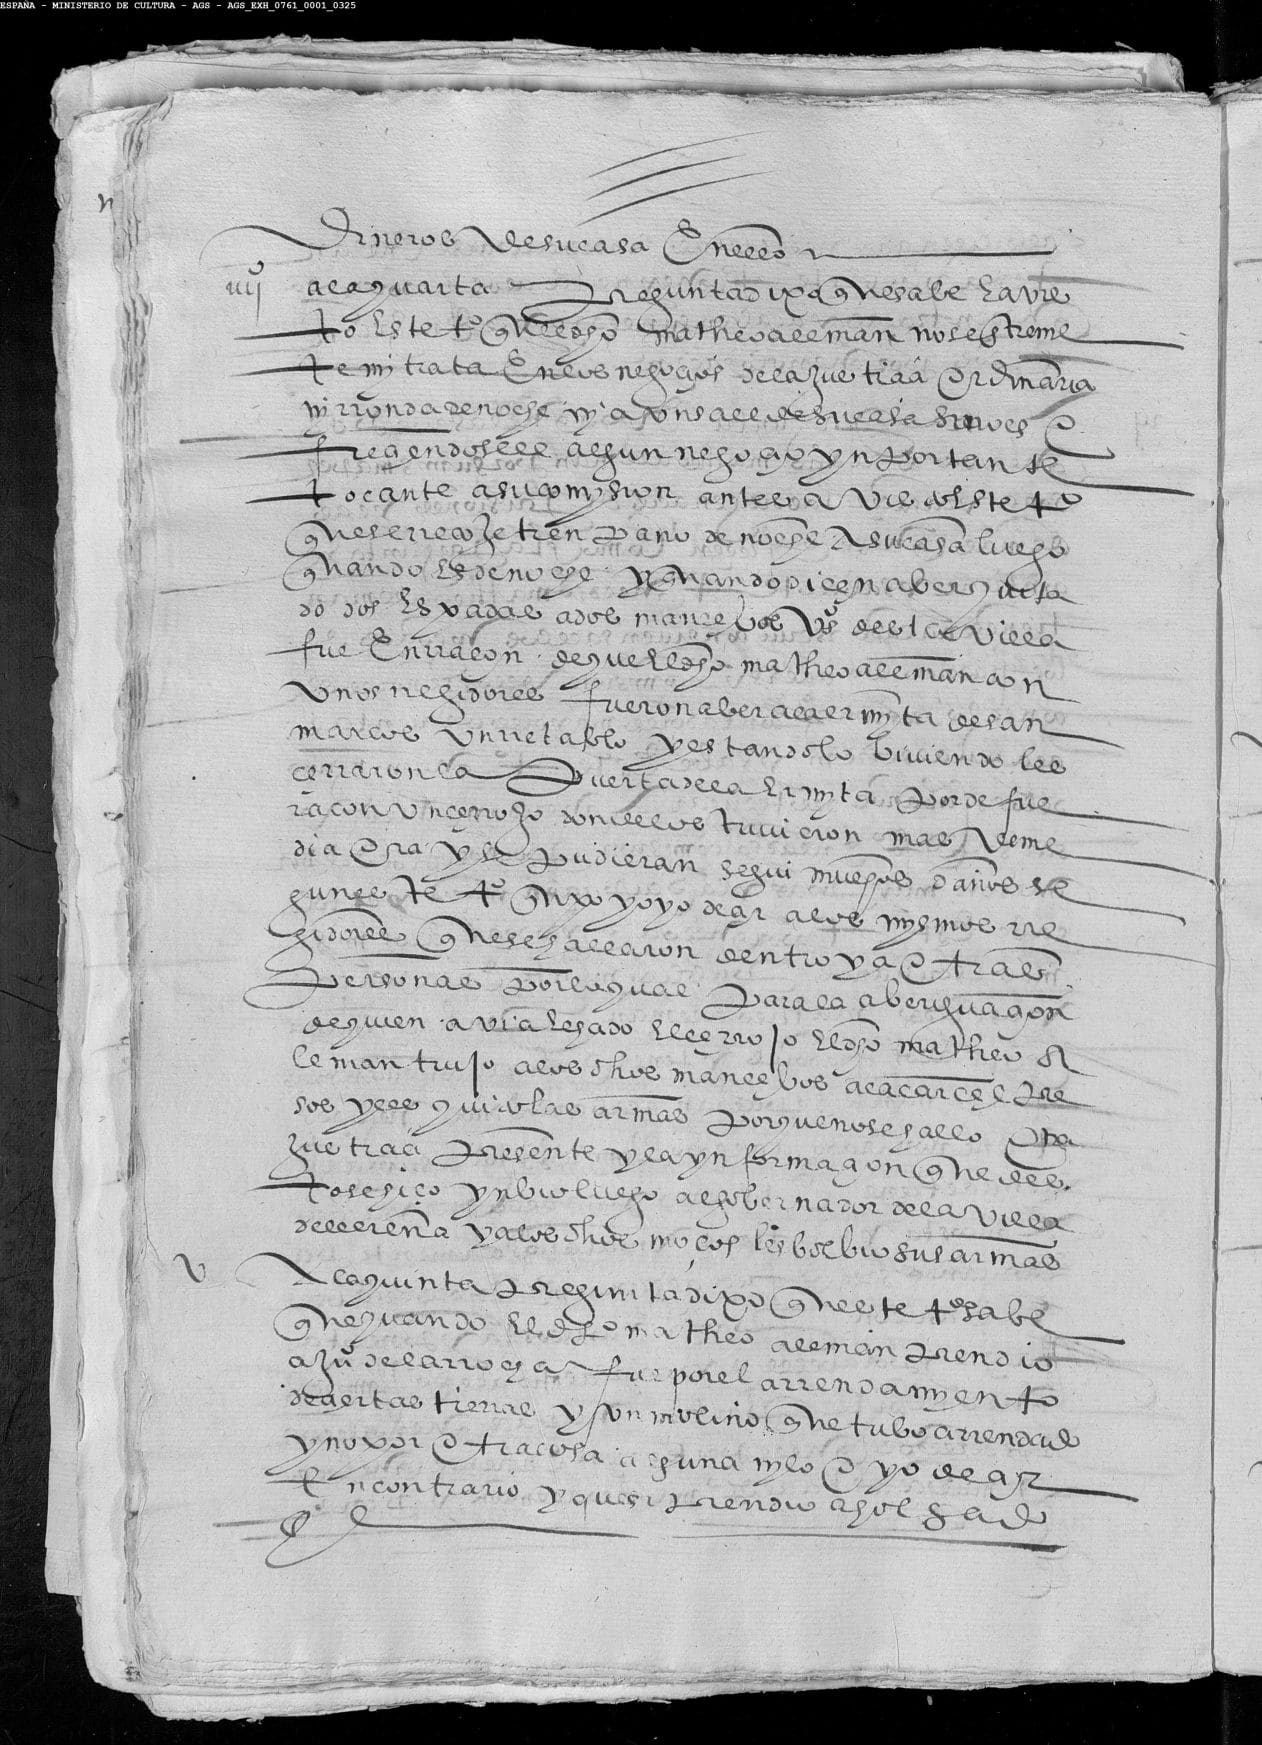 ESPAÑA - MINISTERIO DE CULTURA - AGS - AGS_EXH_0761_0001_0325
Dineros de su casa en ello
iiijº a la quarta pregunta dixo que sabe la vis
to este tº quel dho matheo aleman no se entreme
te ni trata en los negoçios de la Justiçia ordinaria
ni rronda de noche ni a on sale de su casa si no es o
freçiendosele algun negoçio ynportante
tocante a su comysion antes a visto este tº
que se rrecoze tenprano de noche a su casa luego
quando es de noche y quando diçen aber quita
do dos espadas a dos mançebos vºs desta villa
fue en rraçon de que el dho matheo aleman con
unos rregidores fueron a ber a la ermyta de san
marcos un rretablo y estandolo biuiendo les
çerraron la puerta de la ermyta por de fue
ra con un çerrojo donde los tuuieron mas de me
dia ora y se pudieran segui muchos daños se
gun este tº dixo y oyo deçir a los mysmos rre
gidores que se hallaron dentro y a otras
personas por lo qual para la aberiguaçon
de quien avia echado el çerrojo el dho matheo a
leman trujo a los dhos mançebos a la carçel pre
sos y les quito las armas porque no se hallo otra
Justiçia presente y la ynformaçon que des
to se hiço ynbio luego al gobernador de la villa
de llerena y a los dhos moços les bolbio sus armas
v A la quinta pregunta dixo que este tº sabe
que quando el dho matheo aleman prendio
a Juº de la rrocha fue por el arrendamyento
de çiertas tierras y un molino que tubo arrendado
y no por otra cosa alguna ny lo oyo deçir
en contrario y que si prendio a hol gado